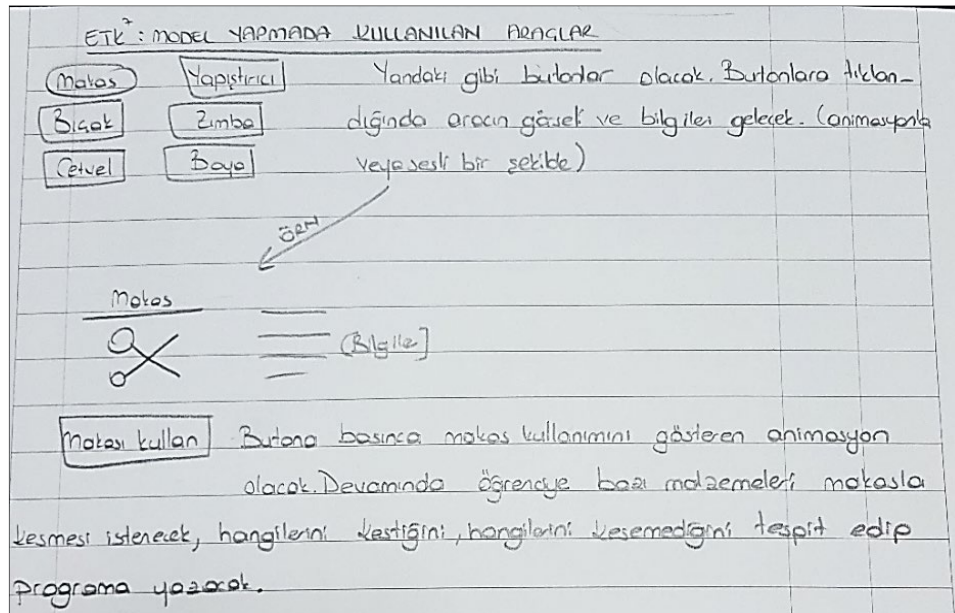 ETK 7: MODEL YAPMADA KULLANILAN ARAÇLAR
Makas Yapıştırıcı Yandaki gibi butonlar olacak. Butonlara tıklan-
Bıçak Zımba dığında aracın görseli ve bilgileri gelecek. (animasyonla
Cetvel Boya veya sesli bir şekilde)
ÖRN
Makas
(Bilgiler)
Makası kullan Butona basınca makas kullanımını gösteren animasyon
olacak. Devamında öğrenciye bazı malzemeleri makasla
kesmesi istenecek, hangilerini kestiğini, hangilerini kesemediğini tespit edip
programa yazacak.